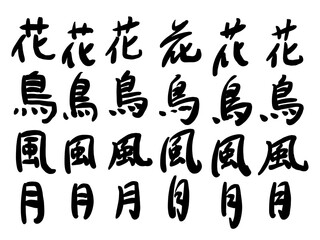 花花花花花花
鳥鳥鳥鳥鳥鳥
風風風風風風
月月月月月月